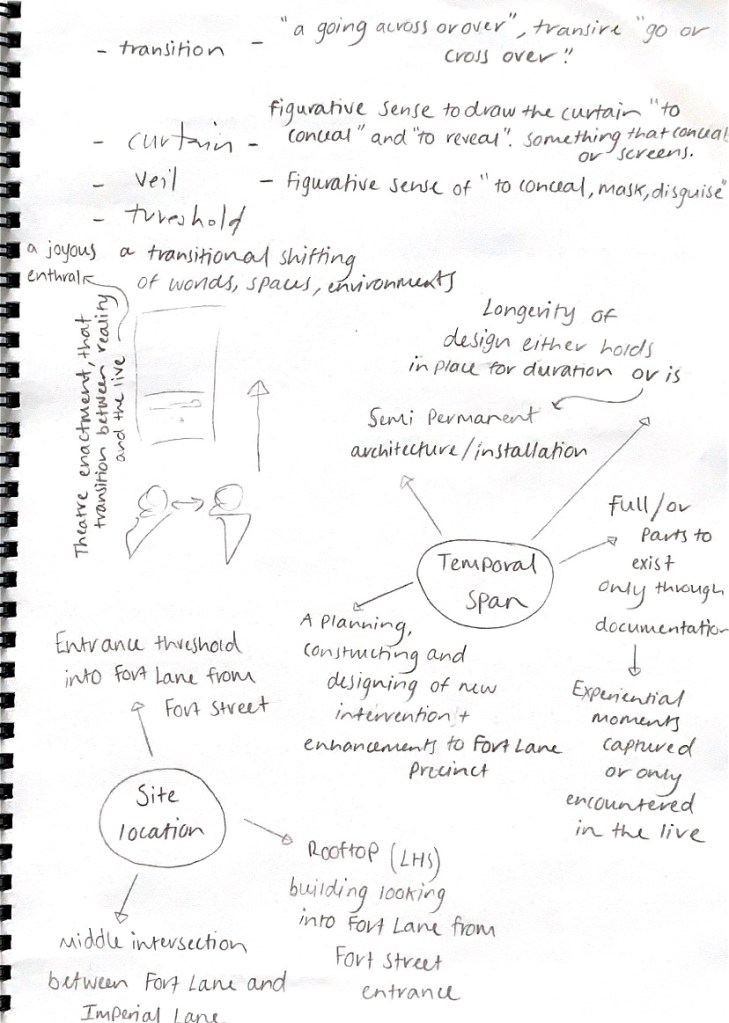 - transition - "a going across or over", transire "go or
cross over".
- curtain - figurative sense to draw the curtain "to
conceal" and "to reveal". Something that conceal
or screens.
- veil - figurative sense of "to conceal, mask, disguise"
- tureshold
a joyous
enthral
a transitional shifting
of worlds, spaces, environments
Theatre enactment, that
transition between reality
and the live
Longevity of
design either holds
in place for duration or is
Semi Permanent
architecture/installation
Temporal
Span
Full/or
Parts to
exist
only through
documentation
Experiential
moments
captured
or only
encountered
in the live
A Planning,
constructing and
designing of new
intervention +
enhancements to Fort Lane
Precinct
Entrance threshold
into Fort Lane from
Fort Street
Site
location
Rooftop (LHS)
building looking
into Fort Lane from
Fort Street
entrance
Middle intersection
between Fort Lane and
Imperial Lane